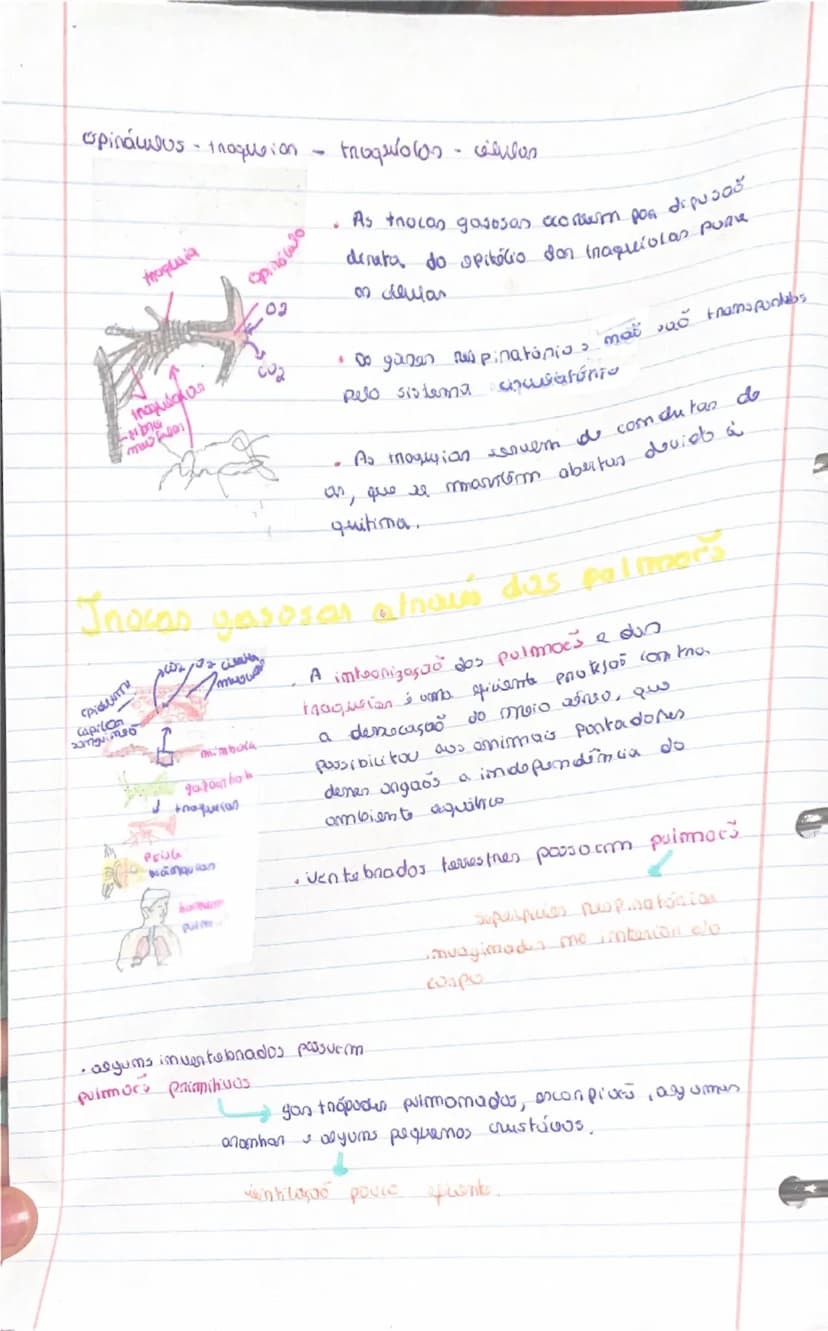 espiráculos - traqueias - traquíolas - células
• As trocas gasosas ocorrem por difusão
direta do epitélio das traquíolas para
as células
traqueia
espiráculo
O2
CO2
traquíolas
fibra
muscular
• Os gases respiratórios não são transportados
pelo sistema circulatório
• As traqueias servem de condutas de
ar, que se mantêm abertas devido à
quitina.
Trocas gasosas através dos pulmões
CO2
O2
epiderme
capilar
sanguíneo
minhoca
gafanhoto
traqueias
Peixe
brânquias
homem
pulm
• A interiorização dos pulmões e das
traqueias é uma eficiente proteção contra
a dessecação do meio aéreo, que
possibilitou aos animais portadores
desses orgãos a independência do
ambiente aquático
• vertebrados terrestres possoem pulmões
superfícies respiratórias
invaginadas no interior do
corpo
• alguns invertebrados possuem
pulmões primitivos
gastrópodes pulmonados, escorpiões, algumas
aranhas e alguns pequenos crustáceos.
ventilação pouco eficiente.